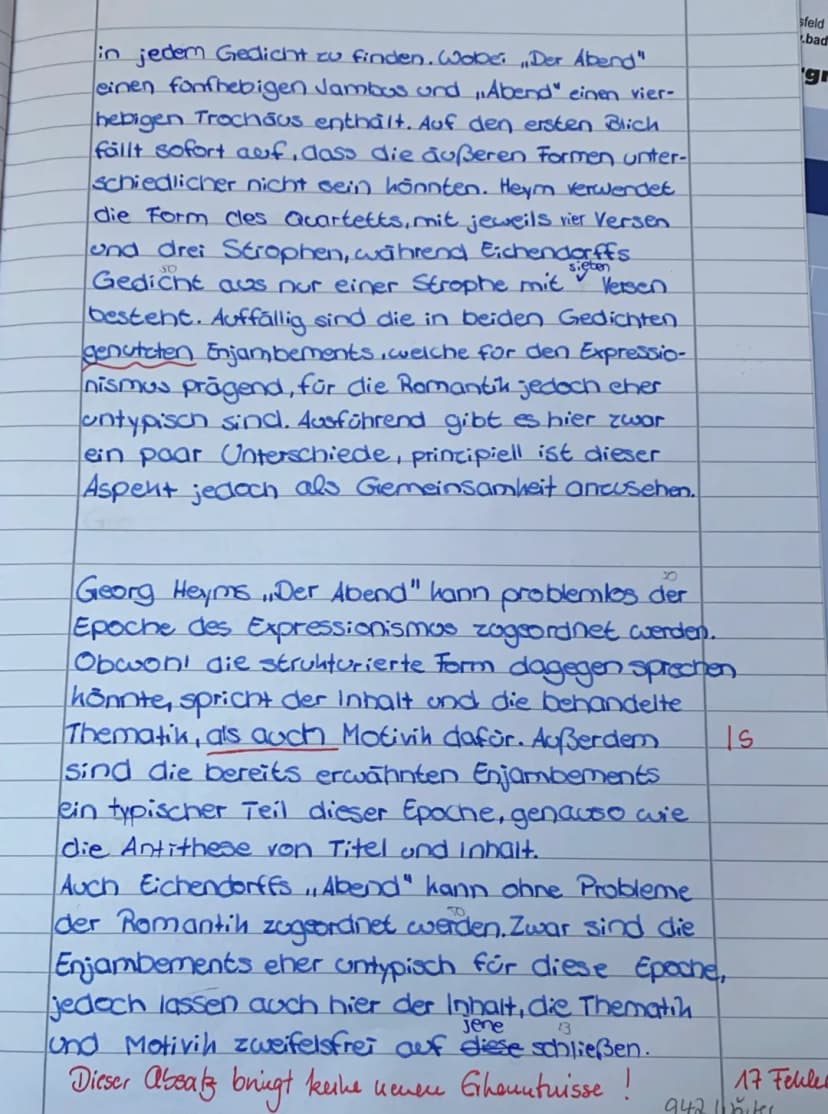 sfeld
.bad
in jedem Gedicht zu finden. Wobei „Der Abend"
einen fünfhebigen Jambus und „Abend" einen vier-
hebigen Trochäus enthält. Auf den ersten Blick
fällt sofort auf, dass die äußeren Formen unter-
schiedlicher nicht sein könnten. Heym verwendet
die Form des Quartetts, mit jeweils vier Versen
und drei Strophen, während Eichendorffs
50 sieben
Gedicht aus nur einer Strophe mit ✓ Versen
besteht. Auffällig sind die in beiden Gedichten
genutzten Enjambements, welche für den Expressio-
nismus prägend, für die Romantik jedoch eher
untypisch sind. Ausführend gibt es hier zwar
ein paar Unterschiede, prinzipiell ist dieser
Aspekt jedoch als Gemeinsamheit anzusehen.
50
Georg Heyms „Der Abend" kann problemlos der
Epoche des Expressionismus zugeordnet werden.
Obwohl die strukturierte Form dagegen sprechen
könnte, spricht der Inhalt und die behandelte
Thematik, als auch Motivik dafür. Außerdem IS
sind die bereits erwähnten Enjambements
ein typischer Teil dieser Epoche, genauso wie
die Antithese von Titel und Inhalt.
Auch Eichendorffs „Abend" kann ohne Probleme
50
der Romantik zugeordnet werden. Zwar sind die
Enjambements eher untypisch für diese Epoche,
jedoch lassen auch hier der Inhalt, die Thematik
jene 13
und Motivik zweifelsfrei auf diese schließen.
Dieser Absatz bringt keine neuen Erkenntnisse! 17 Fehler
942 Wörter